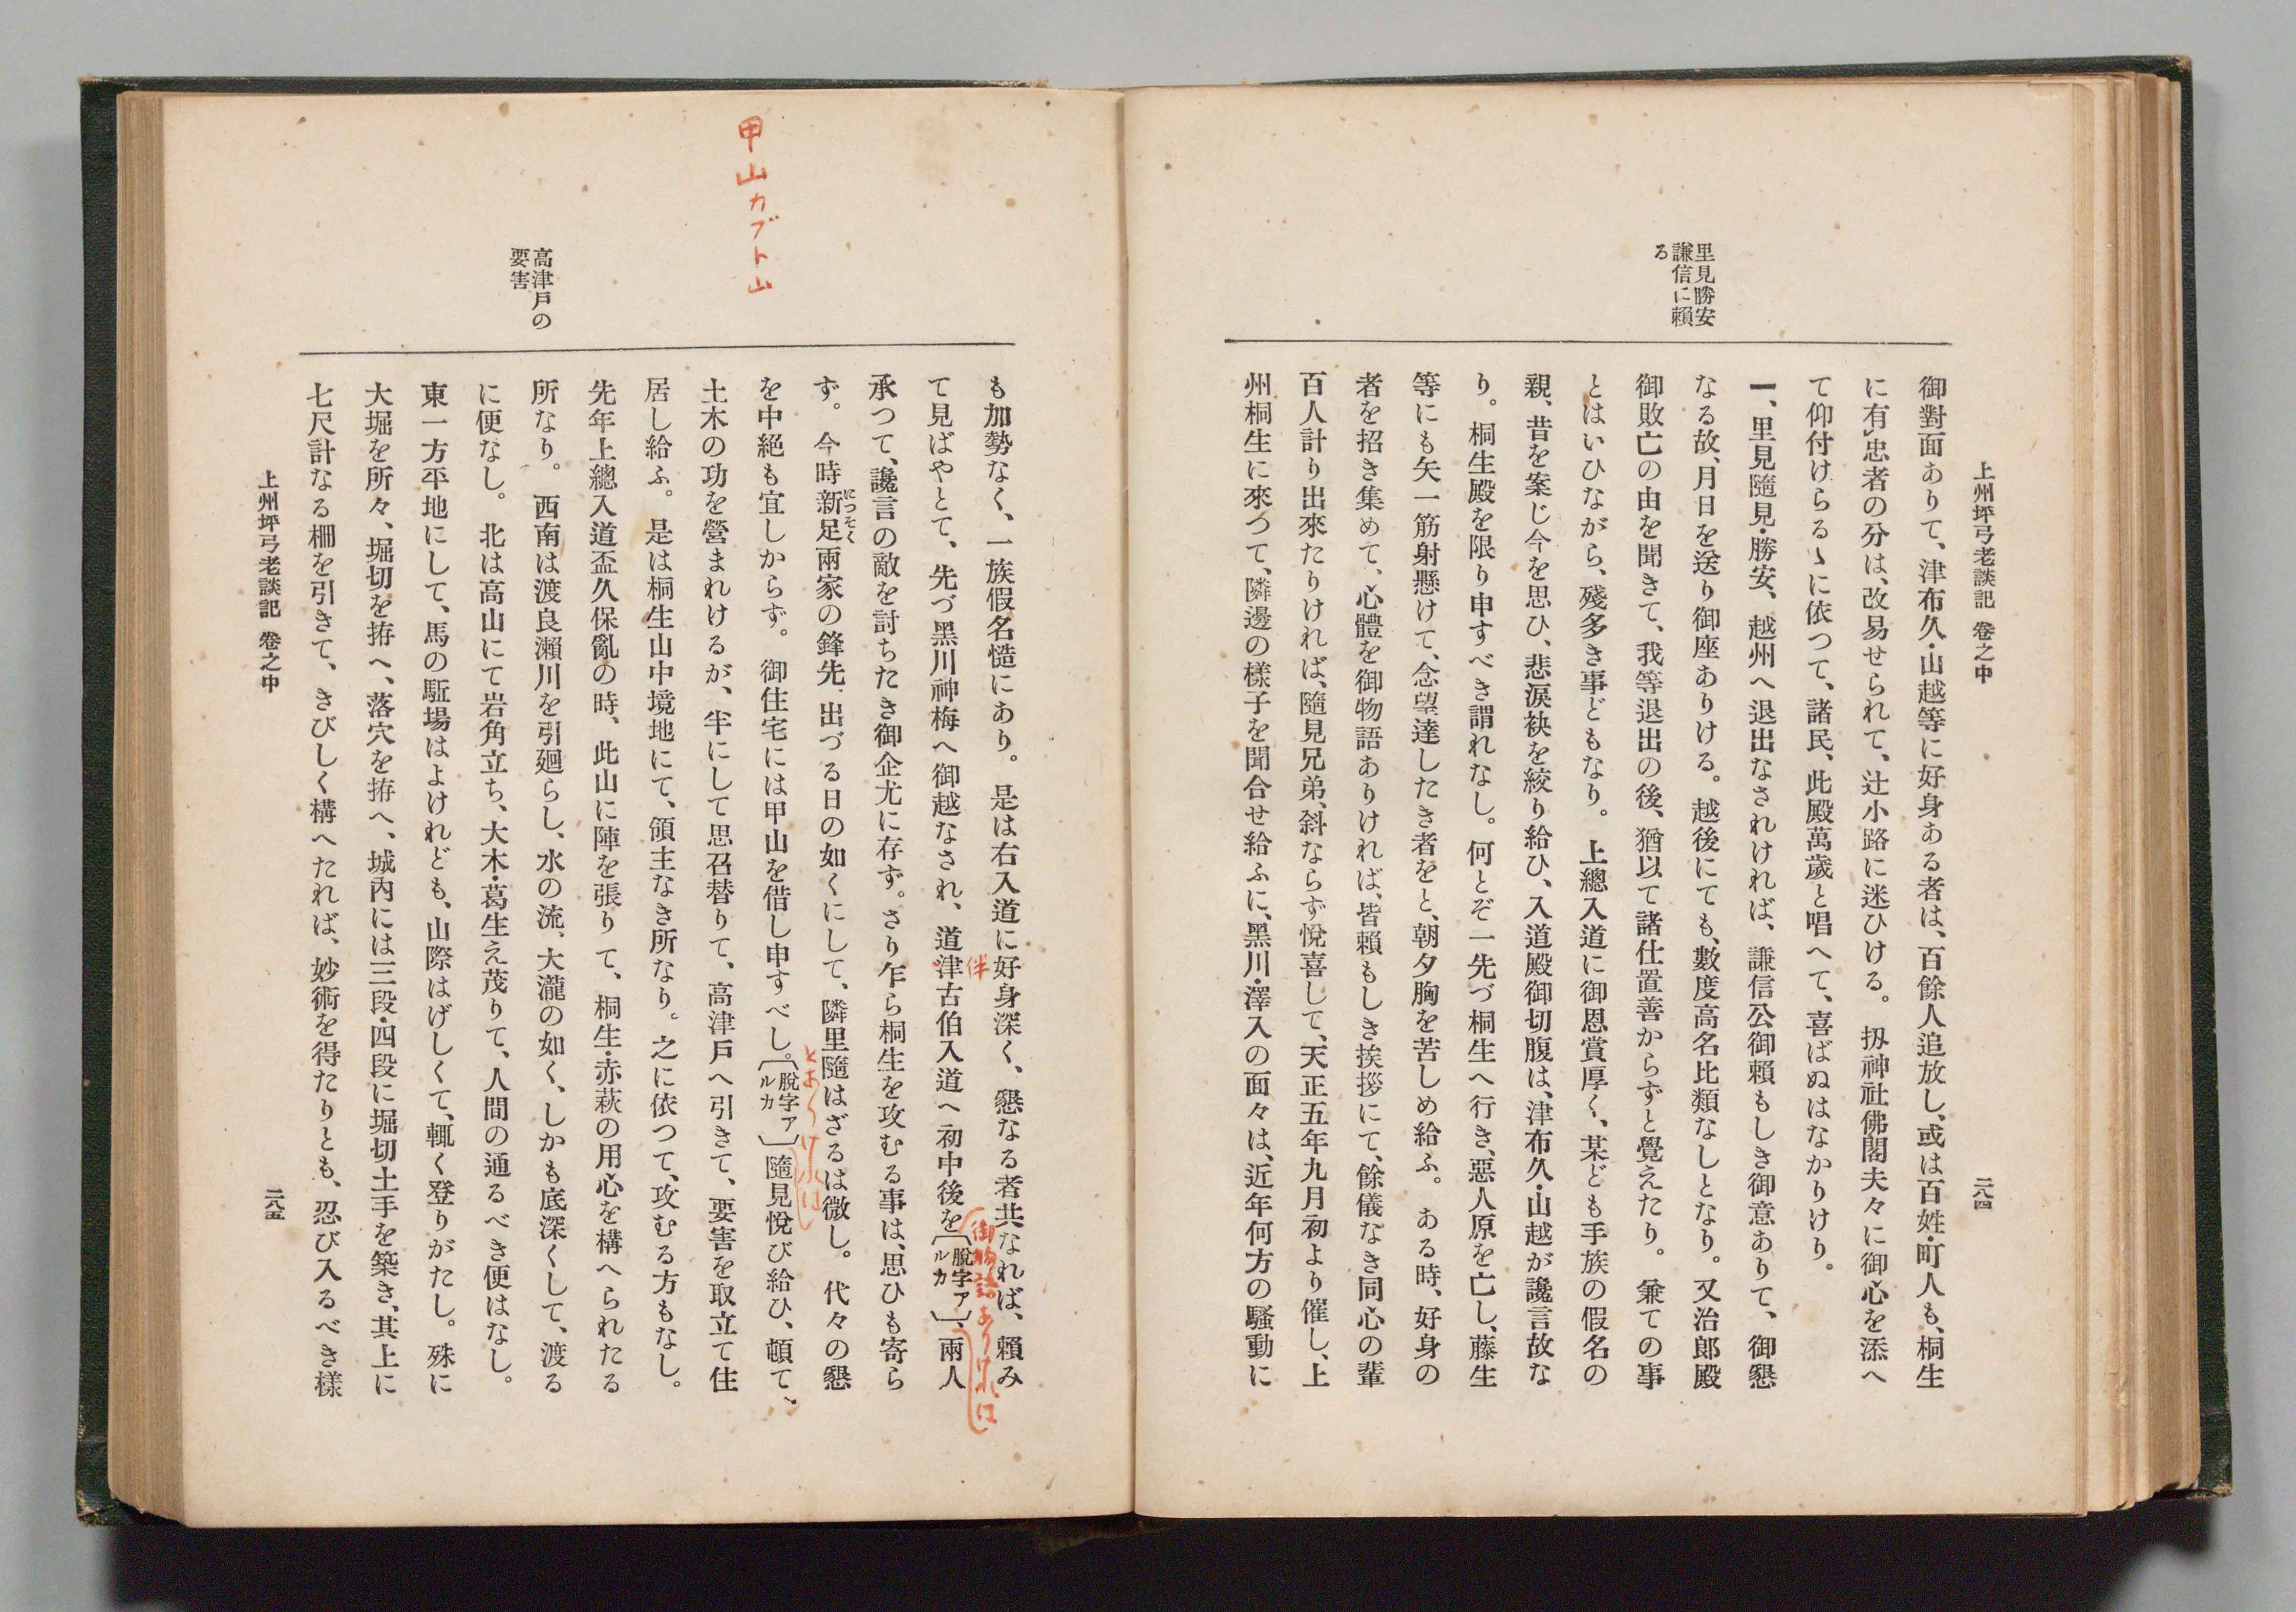 上州坪弓老談記 卷之中
二八四
里見勝安
謙信に賴
る
御對面ありて、津布久・山越等に好身ある者は、百餘人追放し、或は百姓・町人も、桐生
に有忠者の分は、改易せられて、辻小路に迷ひける。扨神社佛閣夫々に御心を添へ
て仰付けらるゝに依つて、諸民、此殿萬歲と唱へて、喜ばぬはなかりけり。
一、里見隨見・勝安、越州へ退出なされければ、謙信公御賴もしき御意ありて、御懇
なる故、月日を送り御座ありける。越後にても、數度高名比類なしとなり。又治郞殿
御敗亡の由を聞きて、我等退出の後、猶以て諸仕置善からずと覺えたり。兼ての事
とはいひながら、殘多き事どもなり。上總入道に御恩賞厚く、某ども手族の假名の
親、昔を案じ今を思ひ、悲淚袂を絞り給ひ、入道殿御切腹は、津布久・山越が讒言故な
り。桐生殿を限り申すべき謂れなし。何とぞ一先づ桐生へ行き、惡人原を亡し、藤生
等にも矢一筋射懸けて、念望達したき者をと、朝夕胸を苦しめ給ふ。ある時、好身の
者を招き集めて、心體を御物語ありければ、皆賴もしき挨拶にて、餘儀なき同心の輩
百人計り出來たりければ、隨見兄弟、斜ならず悅喜して、天正五年九月初より催し、上
州桐生に來つて、隣邊の樣子を聞合せ給ふに、黑川・澤入の面々は、近年何方の騷動に
甲山カブト山
高津戶の
要害
も加勢なく、一族假名慥にあり。是は右入道に好身深く、懇なる者共なれば、賴み
伴
て見ばやとて、先づ黑川神梅へ御越なされ、道津古伯入道へ初中後を〔脫字アルカ〕、兩人
御物語ありければ
承つて、讒言の敵を討ちたき御企尤に存ず。さり乍ら桐生を攻むる事は、思ひも寄ら
ず。今時新足兩家の鋒先、出づる日の如くにして、隣里隨はざるは微し。代々の懇
につそく
を中絕も宜しからず。御住宅には甲山を借し申すべし。〔脫字アルカ〕隨見悅び給ひ、頓て、
土木の功を營まれけるが、半にして思召替りて、高津戶へ引きて、要害を取立て住
居し給ふ。是は桐生山中境地にて、領主なき所なり。之に依つて、攻むる方もなし。
先年上總入道盃久保亂の時、此山に陣を張りて、桐生・赤萩の用心を構へられたる
所なり。西南は渡良瀨川を引廻らし、水の流、大瀧の如く、しかも底深くして、渡る
に便なし。北は高山にて岩角立ち、大木・葛生え茂りて、人間の通るべき便はなし。
東一方平地にして、馬の駈場はよけれども、山際はげしくて、輒く登りがたし。殊に
大堀を所々、堀切を拵へ、落穴を拵へ、城內には三段・四段に堀切土手を築き、其上に
七尺計なる柵を引きて、きびしく構へたれば、妙術を得たりとも、忍び入るべき樣
上州坪弓老談記 卷之中
二八五